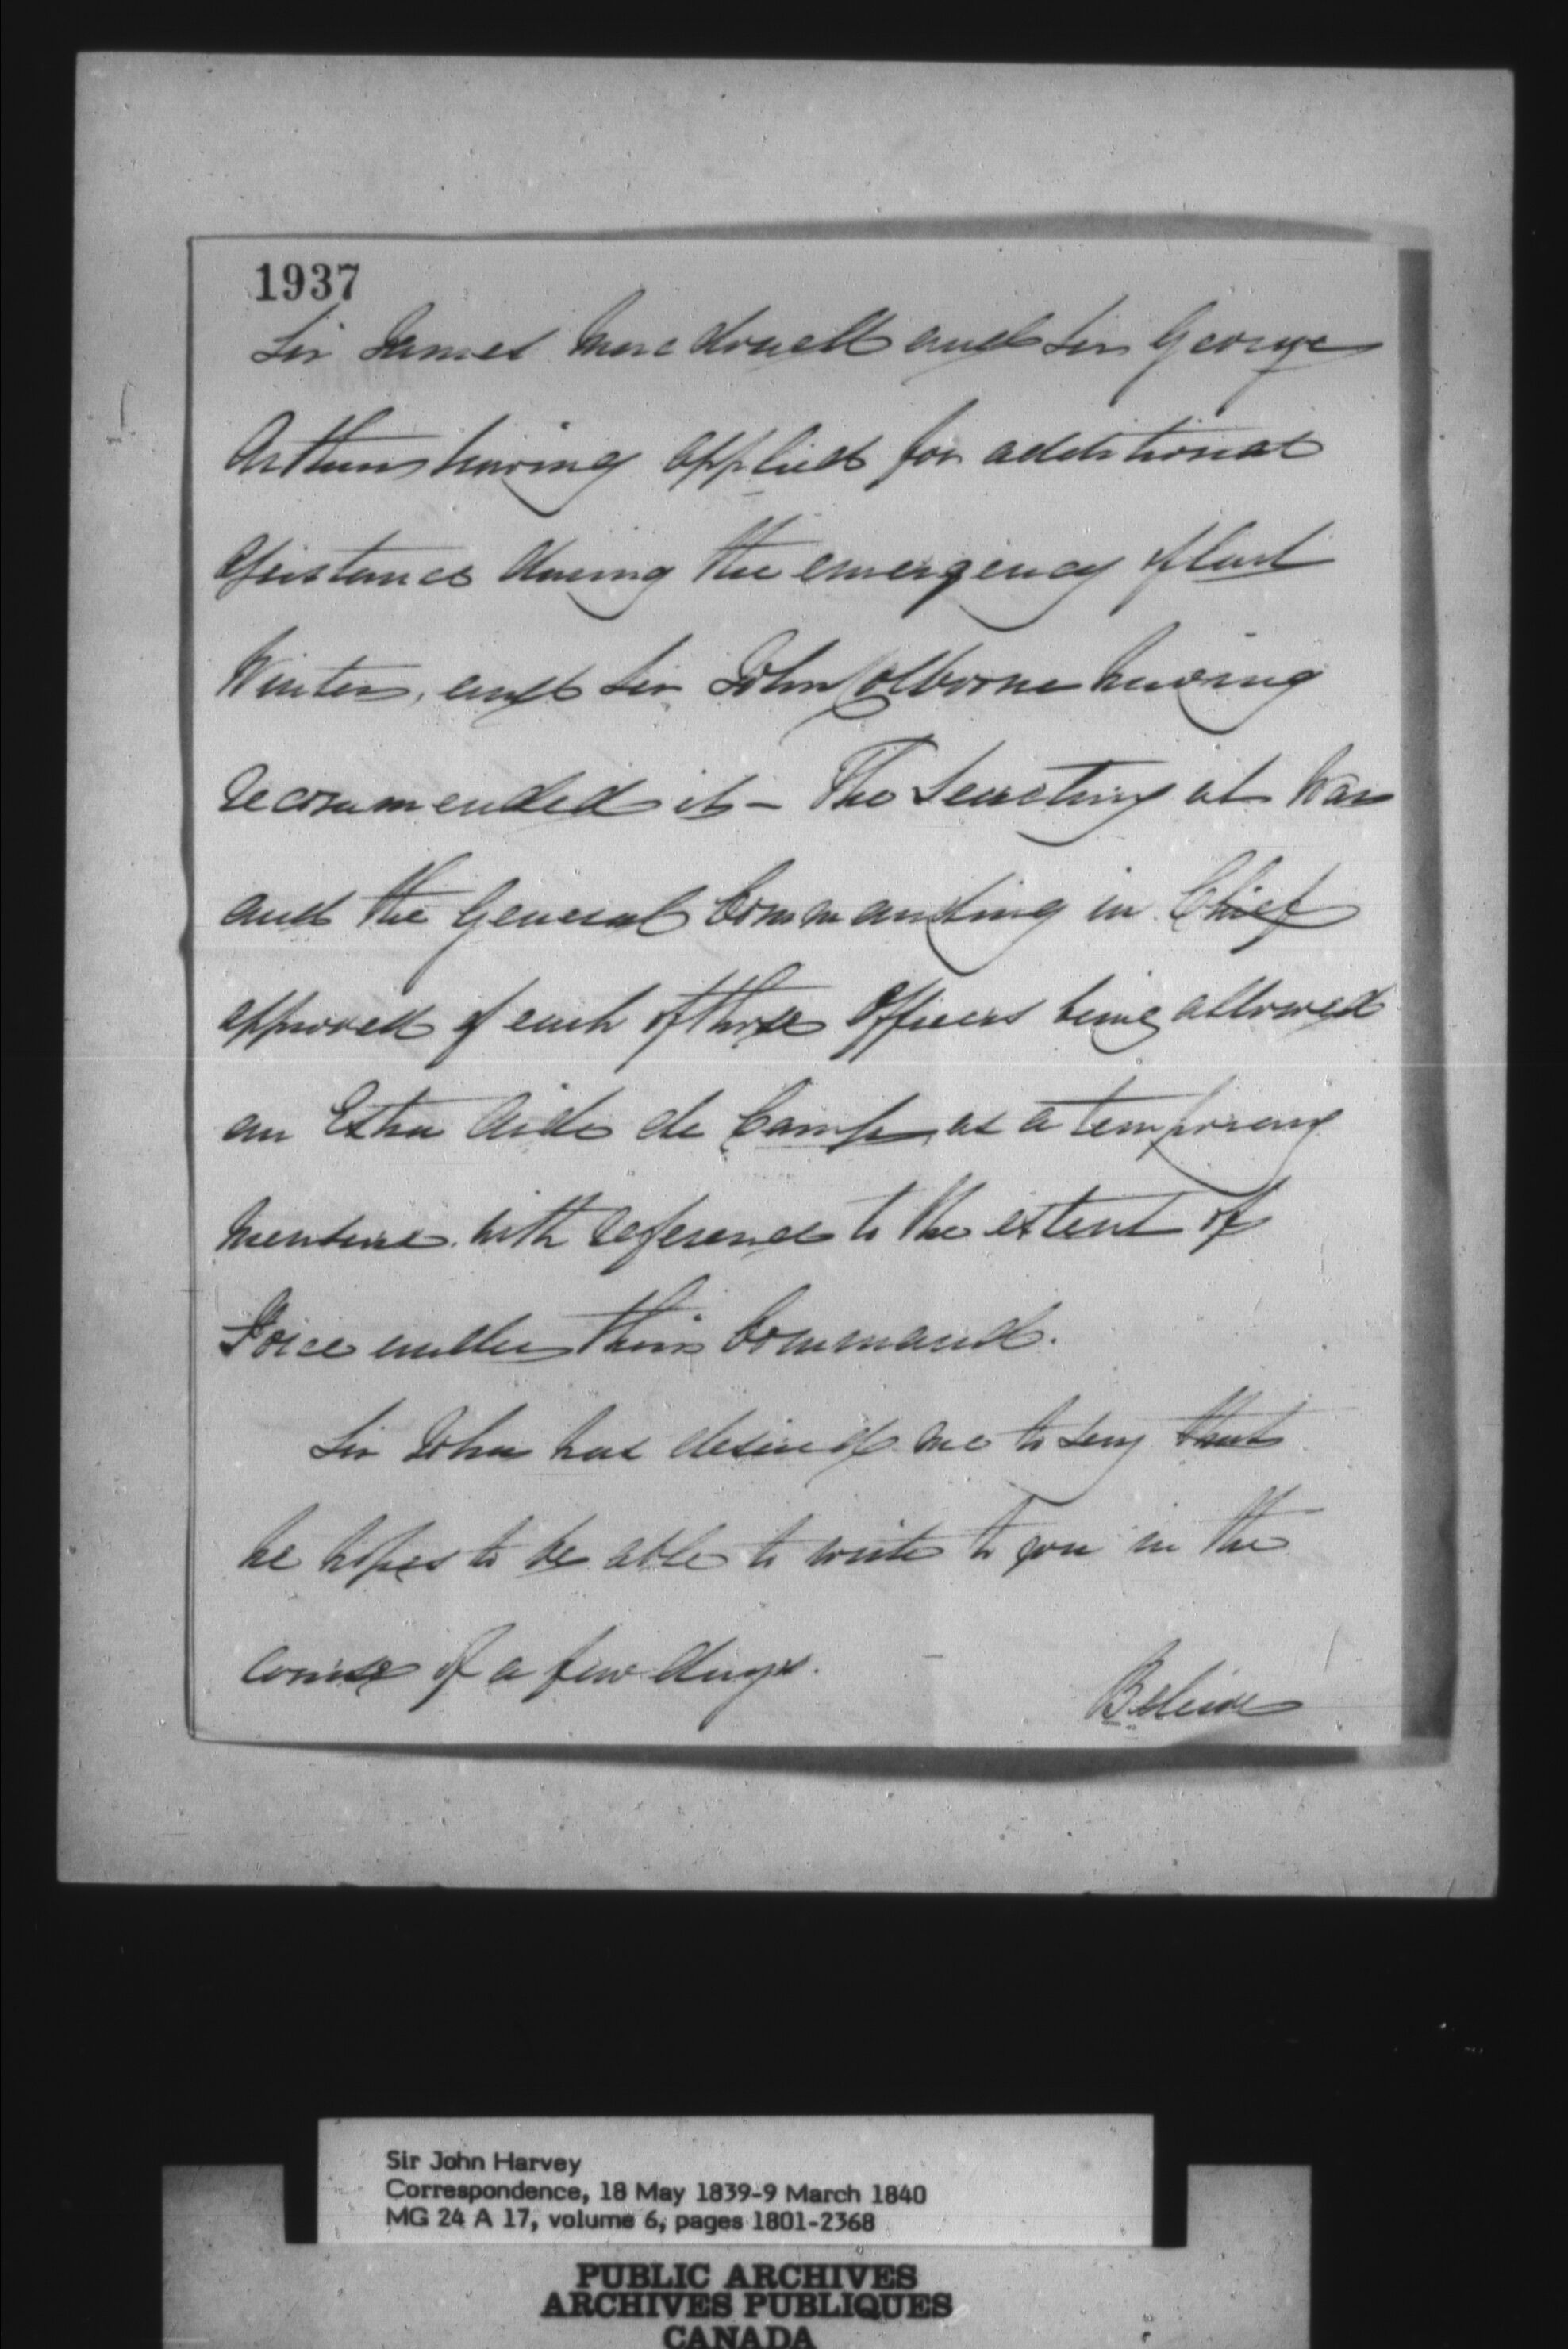 1937
Sir James Macdonell and Sir George
Arthur having applied for additional
assistance during the emergency of last
Winter, and Sir John Colborne having
recommended it - The Secretary at War
and the General Commanding in Chief
approved of each of those Officers being allowed
an Extra Aide de Camp, as a temporary
measure with reference to the extent of
Force under their Command.
Sir John has desired me to say that
he hopes to be able to write to you in the
course of a few days.
Believe
Sir John Harvey
Correspondence, 18 May 1839-9 March 1840
MG 24 A 17, volume 6, pages 1801-2368
PUBLIC ARCHIVES
ARCHIVES PUBLIQUES
CANADA